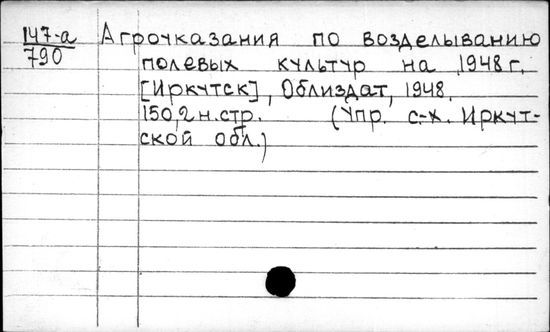 147-а Агроуказания по возделыванию
790 полевых культур на 1948 г.
[Иркутск], Облиздат, 1948.
150,2 н.стр. (Упр. с-х. Иркут-
ской обл.)